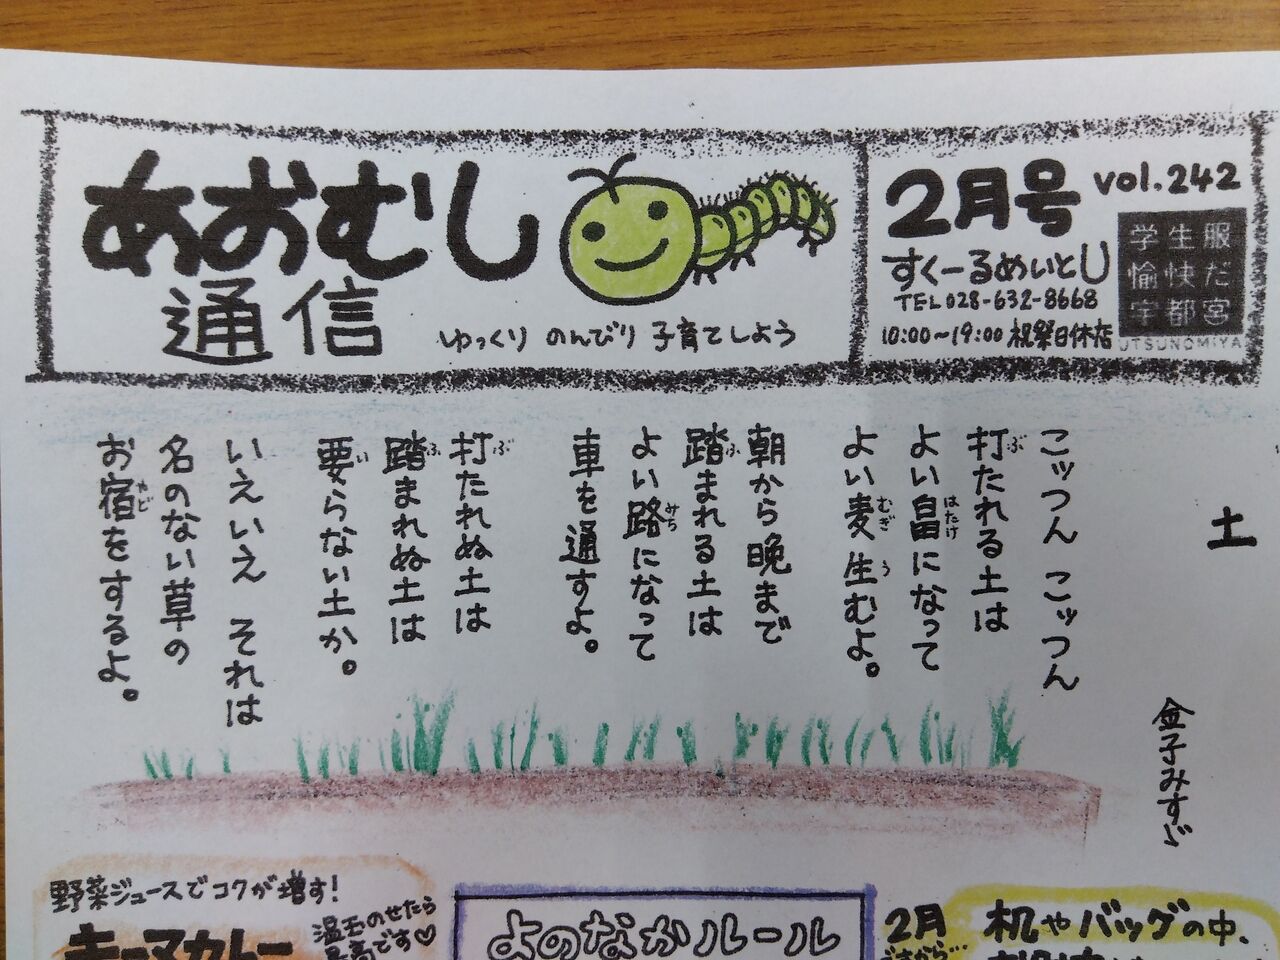 あおむし
通信
ゆっくり のんびり 子育てしよう
2月号 vol.242
すくーるめいとU
TEL028-632-8668
10:00~19:00 祝祭日休店
学生服
愉快だ
宇都宮
UTSUNOMIYA
土
金子みすゞ
こッつん こッつん
打たれる土は
よい畠になって
よい麦生むよ。
朝から晩まで
踏まれる土は
よい路になって
車を通すよ。
打たれぬ土は
踏まれぬ土は
要らない土か。
いえいえ それは
名のない草の
お宿をするよ。
野菜ジュースでコクが増す!
キーマカレー
温玉のせたら
最高です♡
よのなかルール
2月
机やバッグの中、